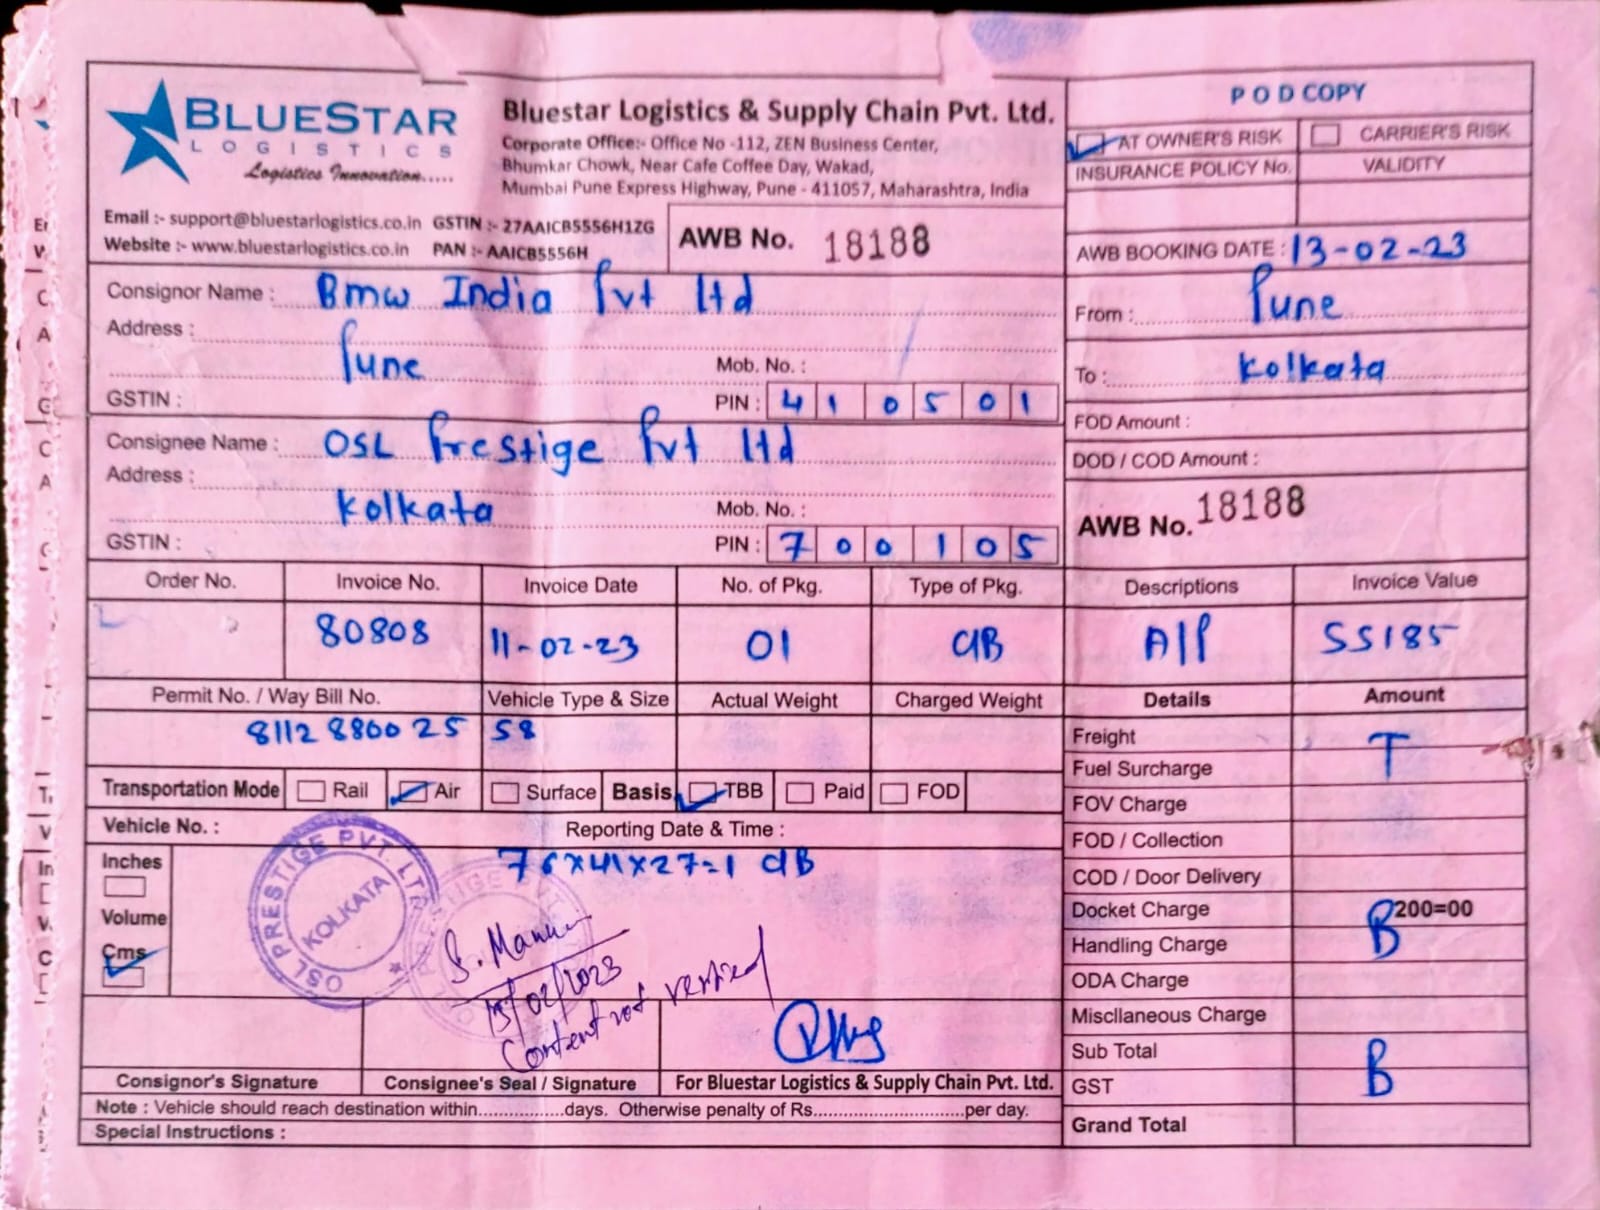 BLUESTAR
LOGISTICS
Logistics Innovation.....
Bluestar Logistics & Supply Chain Pvt. Ltd.
Corporate Office:- Office No -112, ZEN Business Center,
Bhumkar Chowk, Near Cafe Coffee Day, Wakad,
Mumbai Pune Express Highway, Pune - 411057, Maharashtra, India
Email :- support@bluestarlogistics.co.in GSTIN :- 27AAICB5556H1ZG
Website :- www.bluestarlogistics.co.in PAN :- AAICB5556H
AWB No. 18188
POD COPY
AT OWNER'S RISK CARRIER'S RISK
INSURANCE POLICY No. VALIDITY
AWB BOOKING DATE : 13-02-23
From : Pune
To : Kolkata
FOD Amount :
DOD / COD Amount :
AWB No. 18188
Consignor Name : Bmw India Pvt Ltd
Address :
Pune Mob. No. :
GSTIN : PIN : 410501
Consignee Name : OSL Prestige Pvt Ltd
Address :
Kolkata Mob. No. :
GSTIN : PIN : 700105
Order No. Invoice No. Invoice Date No. of Pkg. Type of Pkg. Descriptions Invoice Value
80808 11-02-23 01 CIB A/P 55185
Permit No. / Way Bill No. Vehicle Type & Size Actual Weight Charged Weight Details Amount
8112 8800 25 58
Freight T
Fuel Surcharge
FOV Charge
FOD / Collection
COD / Door Delivery
Docket Charge 200=00
Handling Charge B
ODA Charge
Miscllaneous Charge
Sub Total B
GST
Grand Total
Transportation Mode Rail Air Surface Basis TBB Paid FOD
Vehicle No. : Reporting Date & Time :
Inches
Volume
Cms
76x41x27=1 CIB
OSL PRESTIGE PVT. LTD.
KOLKATA
15/02/2023
Content not verified
Consignor's Signature Consignee's Seal / Signature For Bluestar Logistics & Supply Chain Pvt. Ltd.
Note : Vehicle should reach destination within................days. Otherwise penalty of Rs............................per day.
Special Instructions :